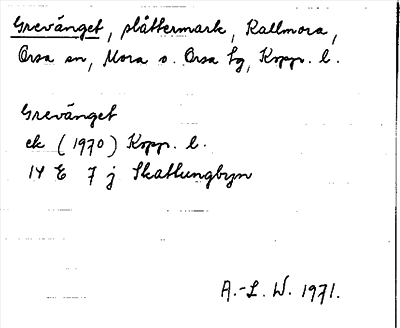 Grevänget, slåttermark, Kallmora,
Orsa sn, Mora o. Orsa tg, Kopp. l.
Grevänget
ek (1970) Kopp. l.
14 E 7 j Skattungbyn
A.-L. W. 1971.